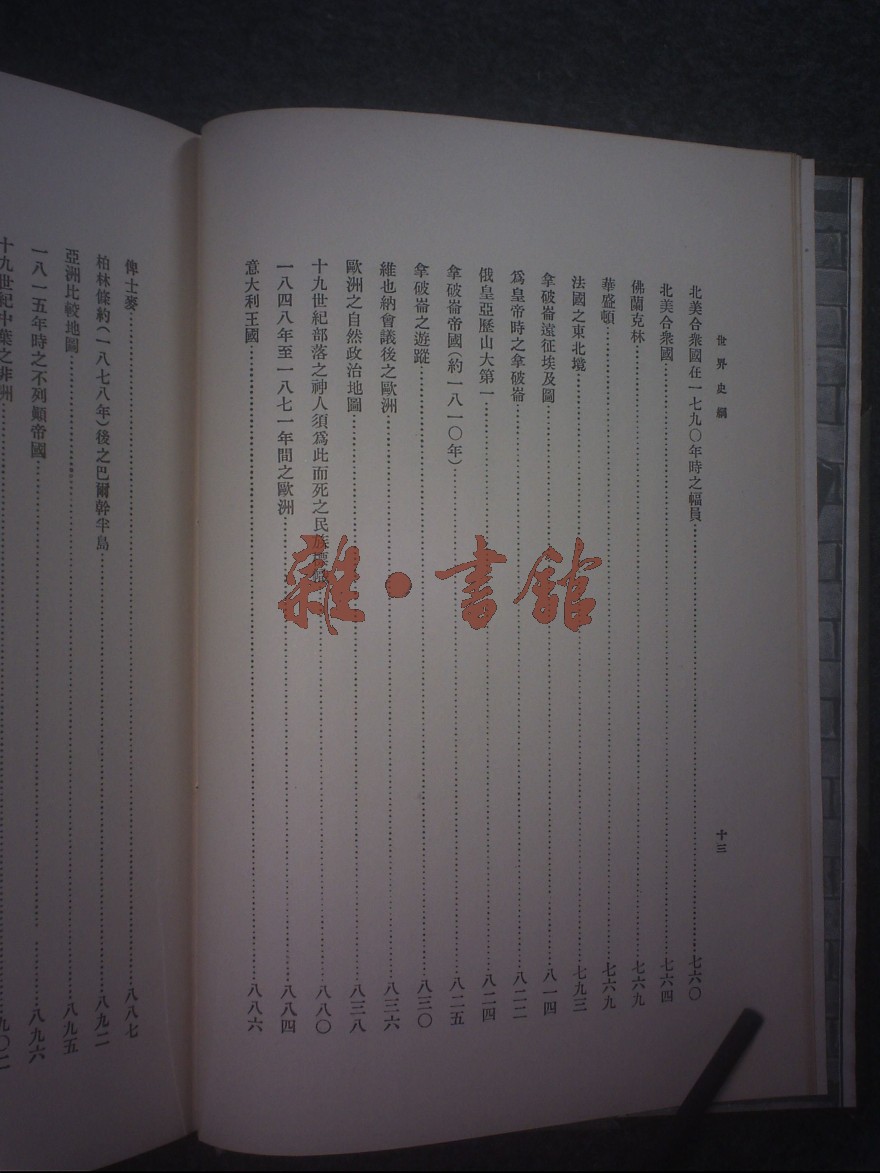 世界史綱
十三
北美合衆國在一七九〇年時之幅員……七六〇
北美合衆國……七六四
佛蘭克林……七六九
華盛頓……七六九
法國之東北境……七九三
拿破崙遠征埃及圖……八一四
爲皇帝時之拿破崙……八二二
俄皇亞歷山大第一……八二四
拿破崙帝國(約一八一〇年)……八二五
拿破崙之遊蹤……八三〇
維也納會議後之歐洲……八三六
歐洲之自然政治地圖……八三八
十九世紀部落之神人須爲此而死之民族……八八〇
一八四八年至一八七一年間之歐洲……八八四
意大利王國……八八六
俾士麥……八八七
柏林條約(一八七八年)後之巴爾幹半島……八九二
亞洲比較地圖……八九五
一八一五年時之不列顛帝國……八九六
十九世紀中葉之非洲……九〇二
雜·書館